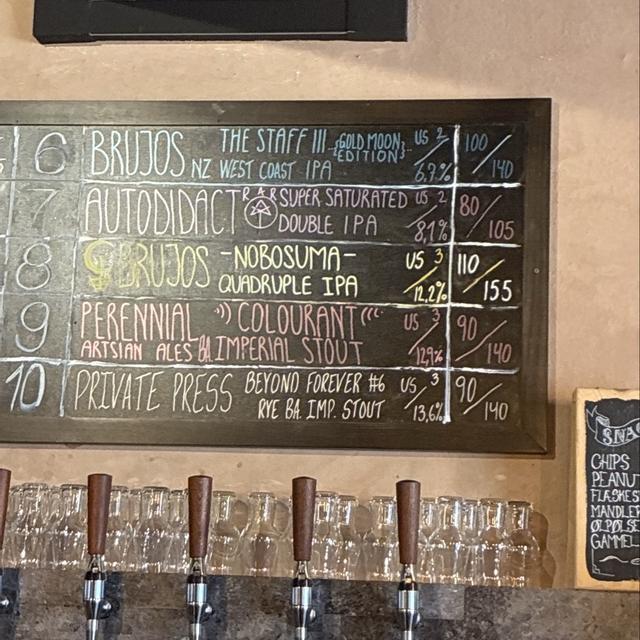 6 BRUJOS THE STAFF III {GOLD MOON US 2 100
NZ WEST COAST IPA EDITION} 6,7% 140
7 AUTODIDACT RAR SUPER SATURATED US 2 80
DOUBLE IPA 8,1% 105
8 BRUJOS -NOBOSUMA- US 3 110
QUADRUPLE IPA 12,2% 155
9 PERENNIAL COLOURANT US 3 90
ARTSIAN ALES BA IMPERIAL STOUT 12,9% 140
10 PRIVATE PRESS BEYOND FOREVER #6 US 3 90
RYE BA. IMP. STOUT 13,6% 140
SNA
CHIPS
PEANUT
FLÆSKES
MANDLER
ØLPØLSE
GAMMEL